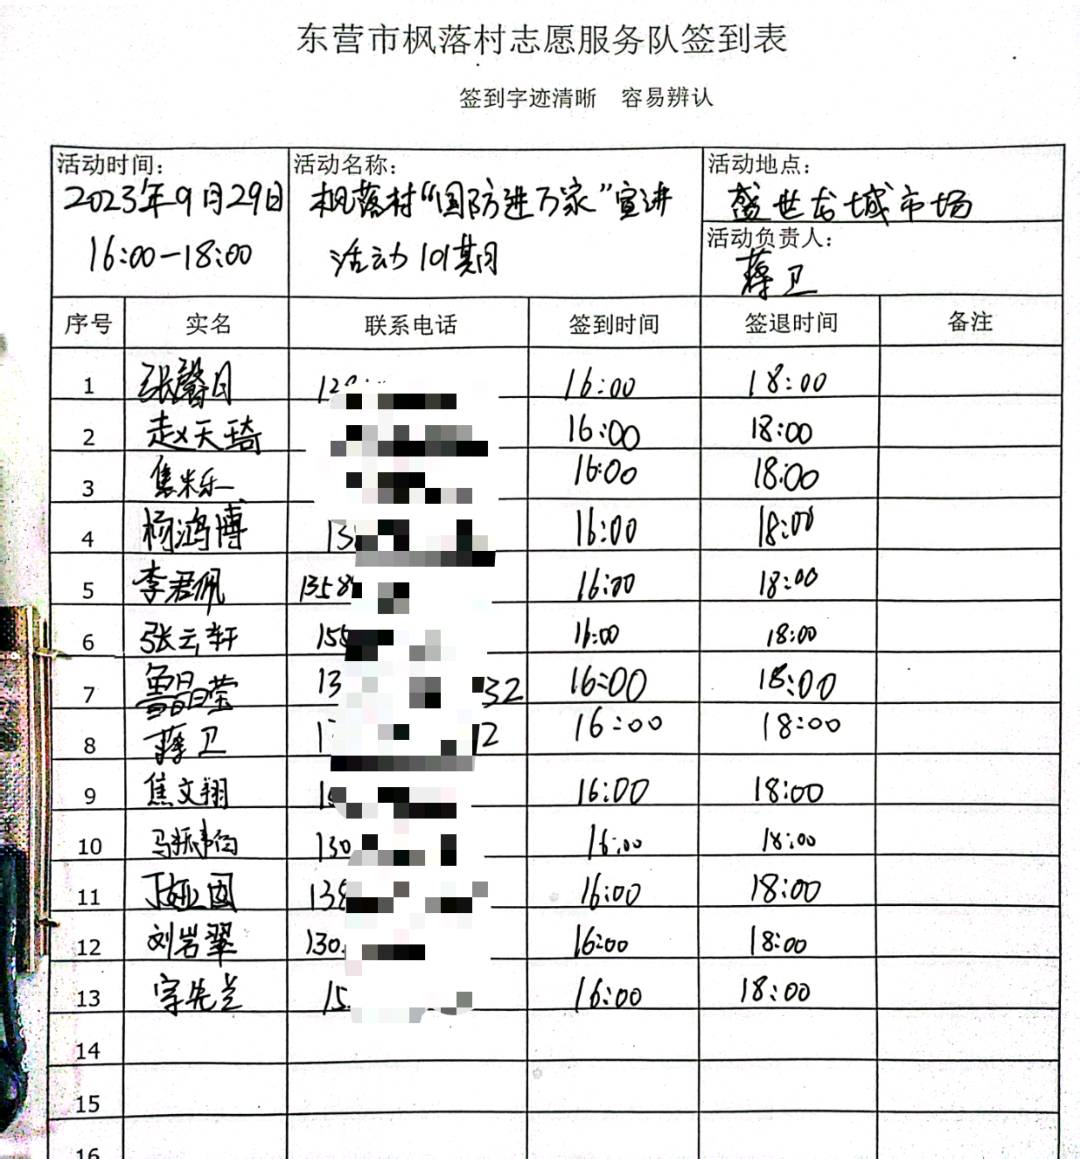 东营市枫落村志愿服务队签到表
签到字迹清晰 容易辨认
活动时间: 活动名称: 活动地点:
2023年9月29日 枫落村“国防进万家”宣讲 盛世龙城市场
16:00-18:00 活动101期 活动负责人:
蒋卫
序号 实名 联系电话 签到时间 签退时间 备注
1 张馨月 16:00 18:00
2 赵天琦 16:00 18:00
3 焦米乐 16:00 18:00
4 杨鸿博 13 16:00 18:00
5 李君佩 1358 16:00 18:00
6 张云轩 155 16:00 18:00
7 鲁晶莹 13 32 16:00 18:00
8 蒋卫 1 2 16:00 18:00
9 焦文翔 1 16:00 18:00
10 130 16:00 18:00
11 138 16:00 18:00
12 刘岩翠 130 16:00 18:00
13 15 16:00 18:00
14
15
16